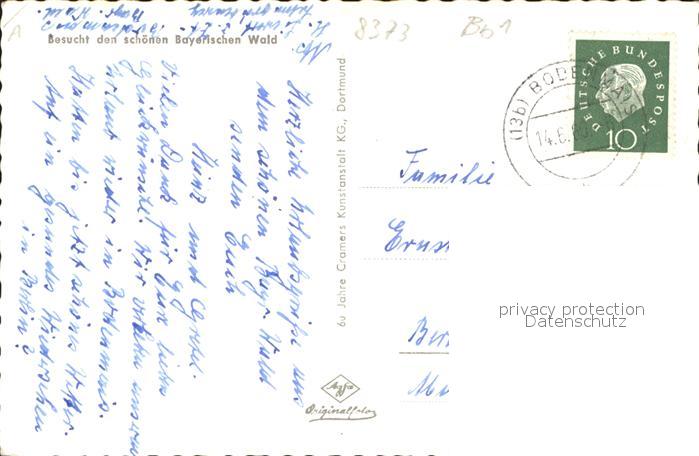 Besucht den schönen Bayerischen Wald
8373
Bb1
Herzliche Urlaubsgrüße aus
dem schönen Bayr. Wald
senden Euch
Heinz und
Vielen Dank für Eure lieben
Glückwünsche. Wir verleben unseren
Urlaub wieder in Bodenmais.
Hatten bis jetzt schönes Wetter.
Auf ein gesundes Wiedersehen
in Berlin?
60 Jahre Cramers Kunstanstalt KG., Dortmund
DEUTSCHE BUNDESPOST
10
(13b) BODENMAIS
14.6.60
Familie
Ernst
Ber
privacy protection
Datenschutz
Agfa
Originalfoto
A